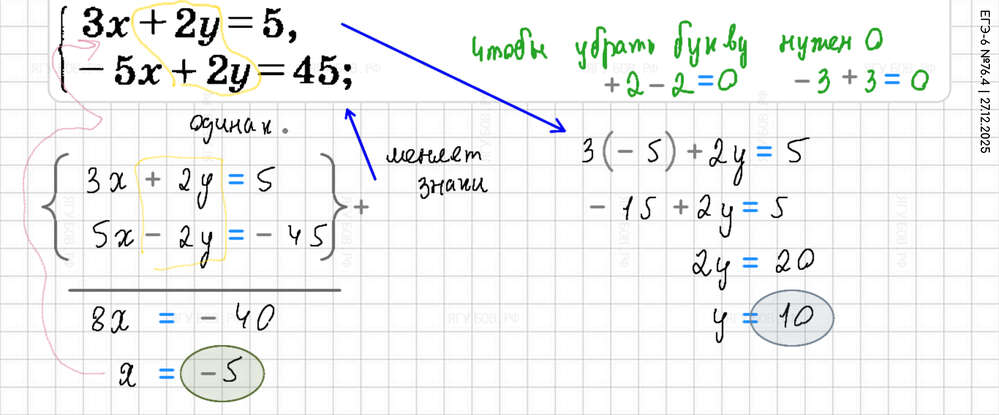 3x + 2y = 5,
− 5x + 2y = 45;
чтобы убрать букву нужен 0
+ 2 − 2 = 0 − 3 + 3 = 0
ЕГЭ-6 №76.4 | 27.12.2025
одинак.
меняет
знаки
3x + 2y = 5
5x − 2y = − 45
+
8x = − 40
x = − 5
3(− 5) + 2y = 5
− 15 + 2y = 5
2y = 20
y = 10